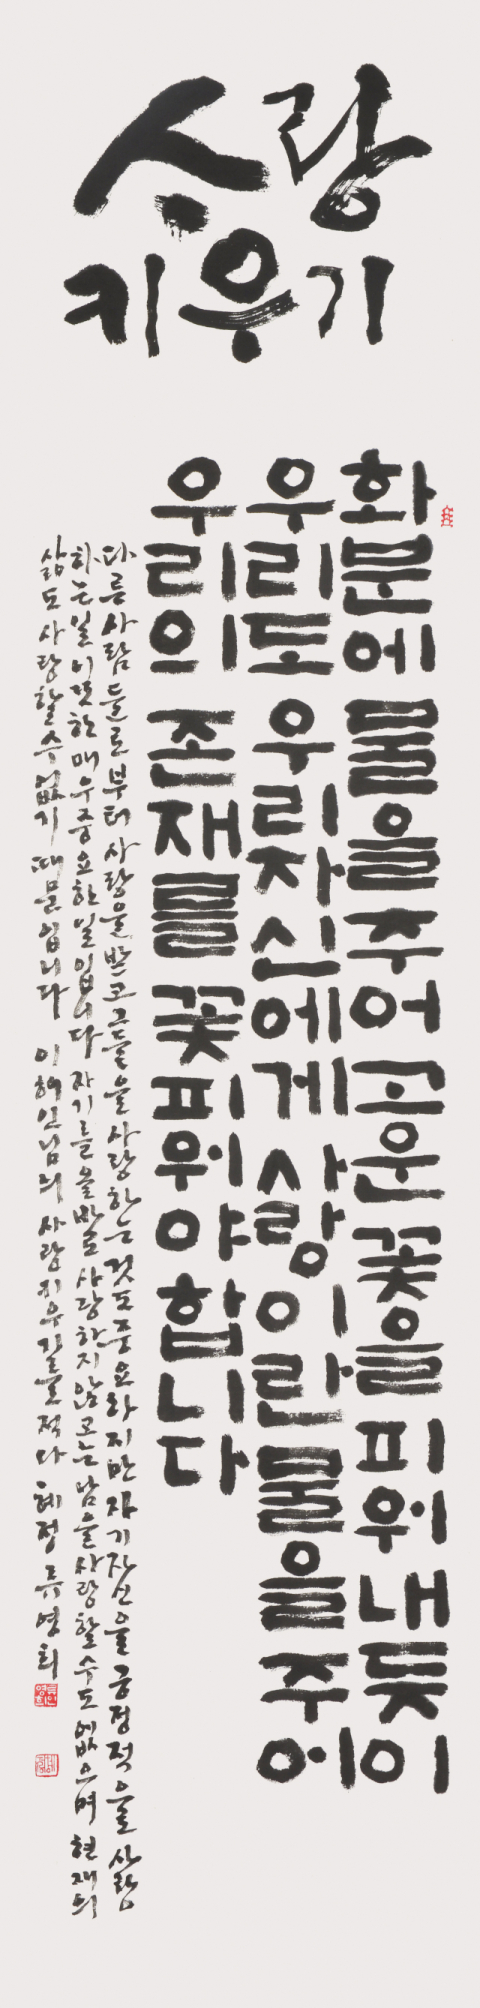 사랑
키우기
화분에 물을 주어 고운 꽃을 피워내듯이
우리도 우리 자신에게 사랑이란 물을 주어
우리의 존재를 꽃피워야 합니다
다른 사람들로부터 사랑을 받고 그들을 사랑하는 것도 중요하지만 자기 자신을 긍정적으로 사랑
하는 일 이것 한 매우 중요한 일입니다 자기를 올바로 사랑하지 않고는 남을 사랑할 수도 없으며 현재의
삶도 사랑할 수 없기 때문입니다 이해인님의 사랑키우기를 적다 혜정 류영희